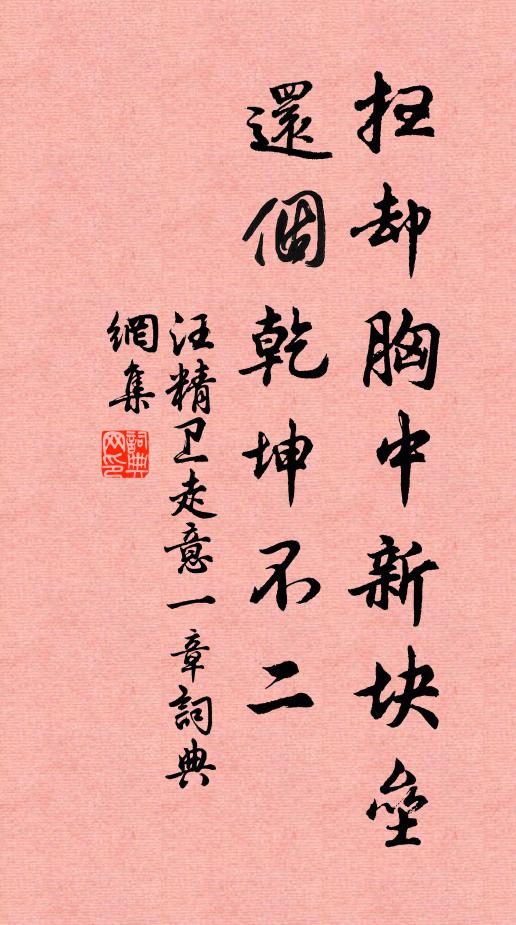 扫却胸中新块垒
還個乾坤不二
汪精卫走意一章詞典
網集
詞典网印